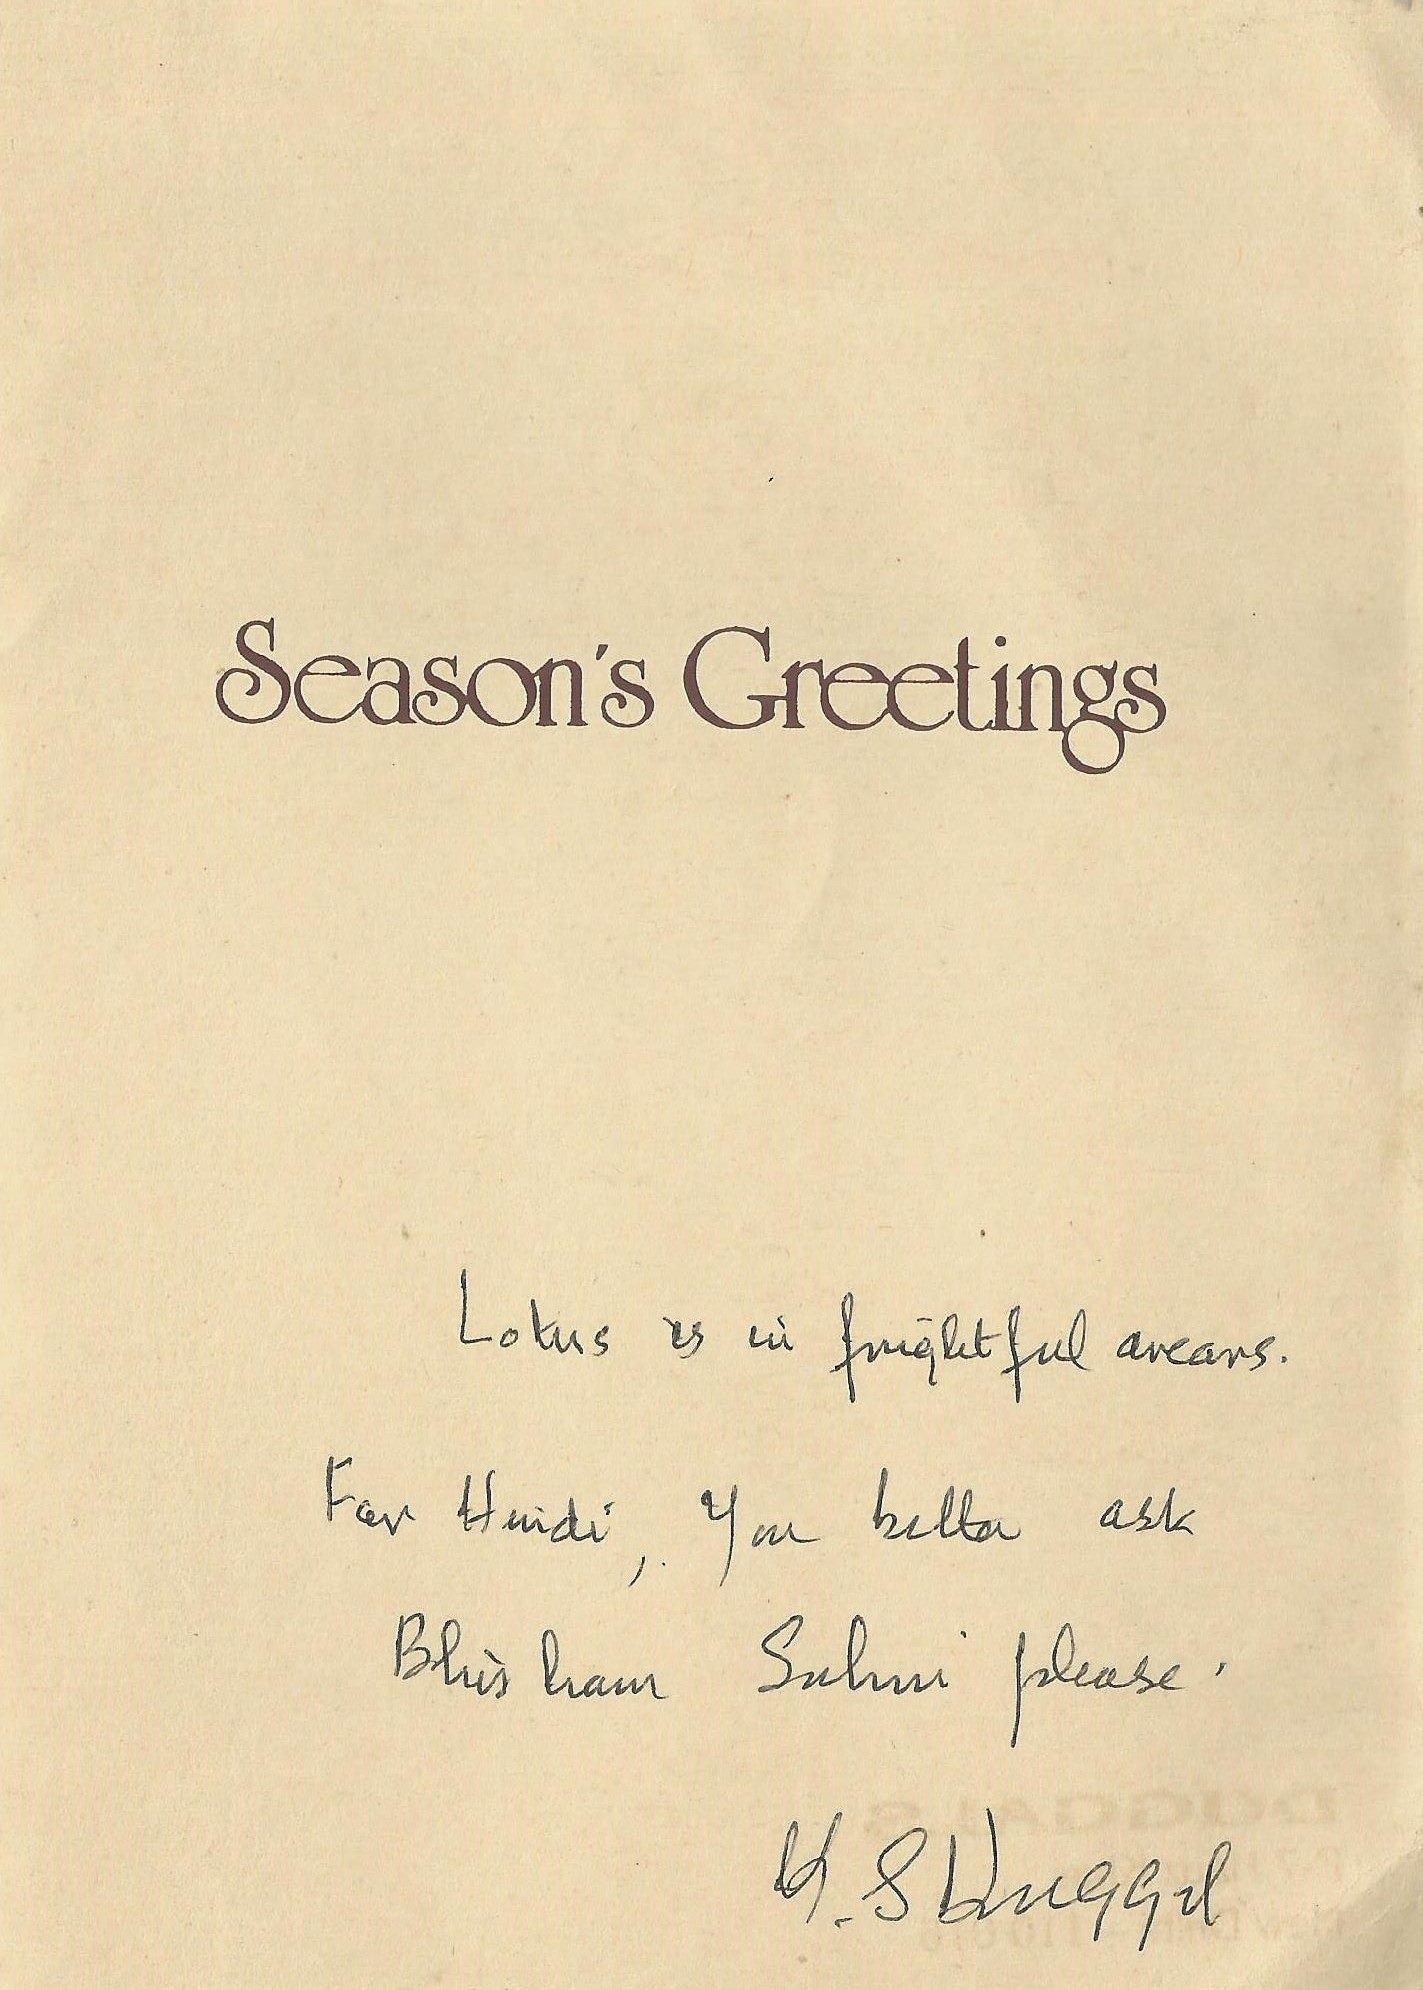 Season's Greetings
Lotus is in frightful arears.
For Hindi, you better ask
Bhisham Sahni please.
K. S Duggal
DUGGALS